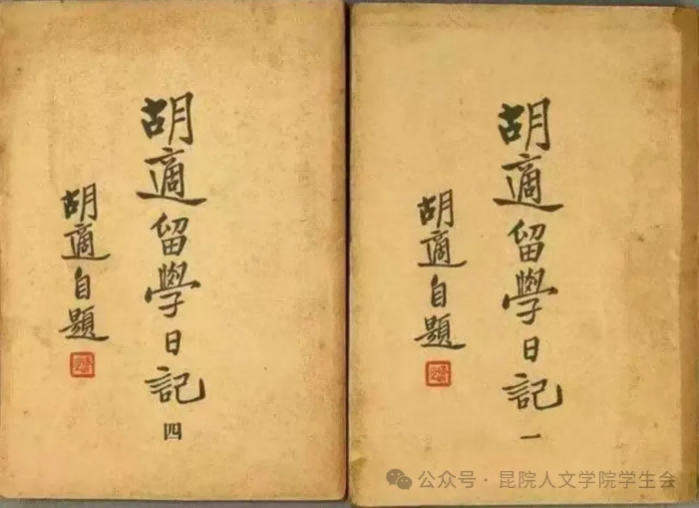 胡適留學日記
四
胡適自題
胡適留學日記
一
胡適自題
公众号·昆院人文学院学生会